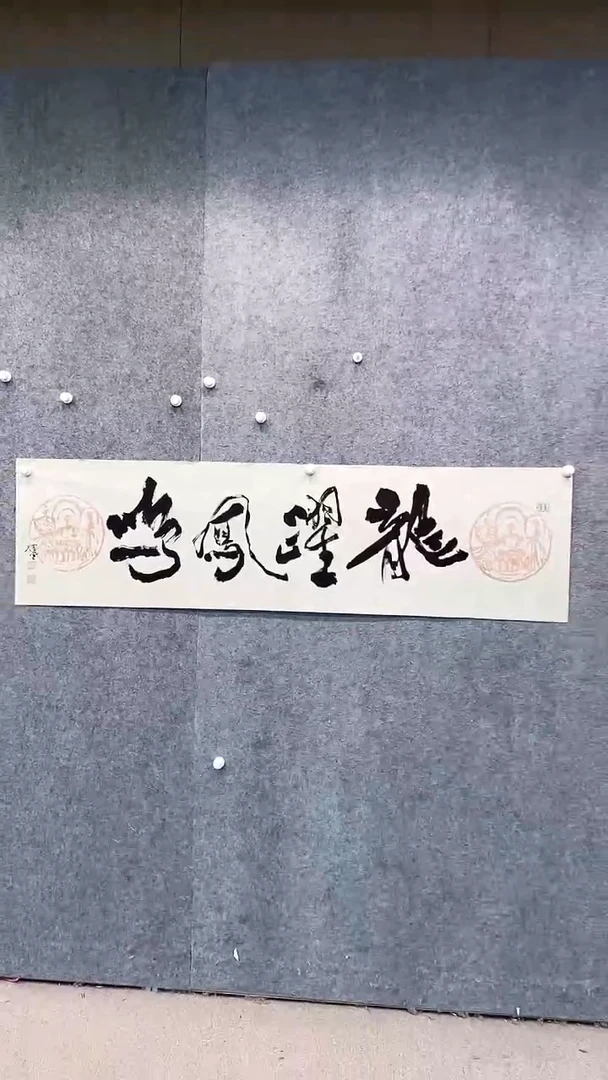 龍躍鳳鳴